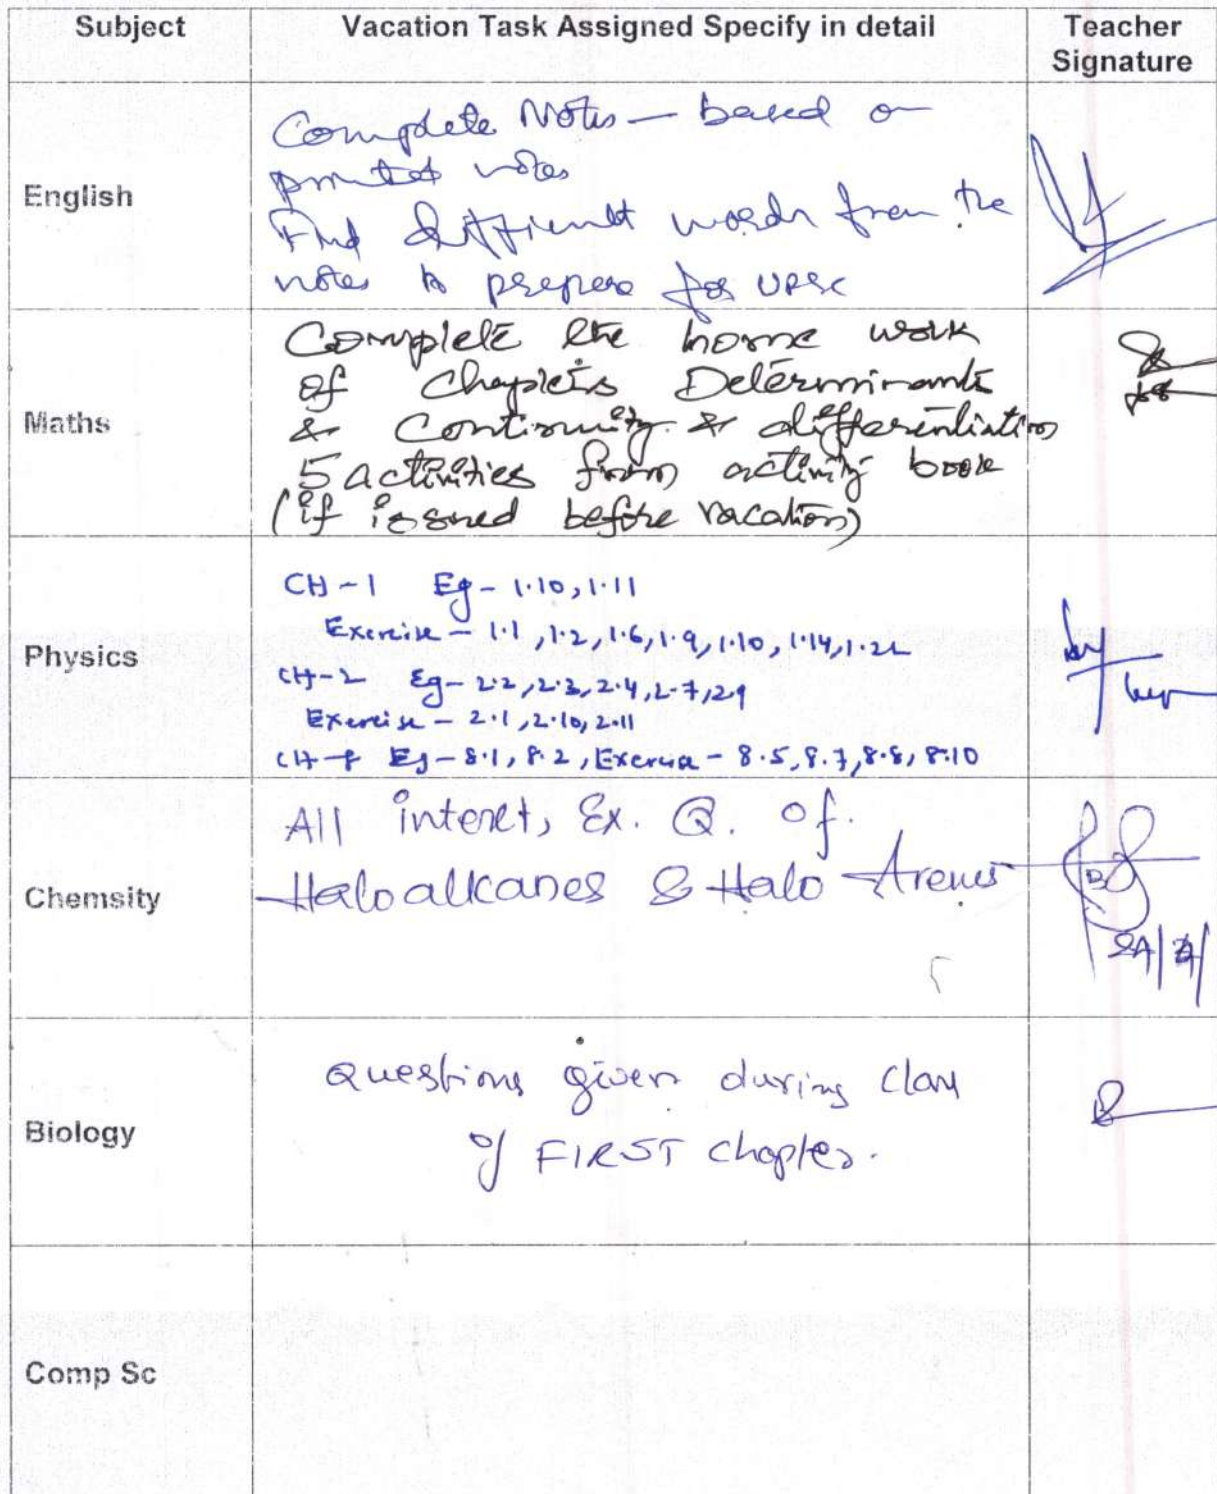 Subject Vacation Task Assigned Specify in detail Teacher Signature
English
Complete Notes — based on
printed notes
Find difficult words from the
notes to prepare for UPSC
Maths
Complete the home work
of Chapters Determinants
& Continuity & differentiation
5 activities from activity book
(if issued before vacation)
Physics
CH-1 Eg- 1.10, 1.11
Exercise - 1.1, 1.2, 1.6, 1.9, 1.10, 1.14, 1.22
CH-2 Eg- 2.2, 2.3, 2.4, 2.7, 2.9
Exercise - 2.1, 2.10, 2.11
CH-8 Eg- 8.1, 8.2, Exercise - 8.5, 8.7, 8.8, 8.10
Chemsity
All intext, Ex. Q. of.
Haloalkanes & Halo Arenes
Biology
Questions given during class
of FIRST chapter.
Comp Sc